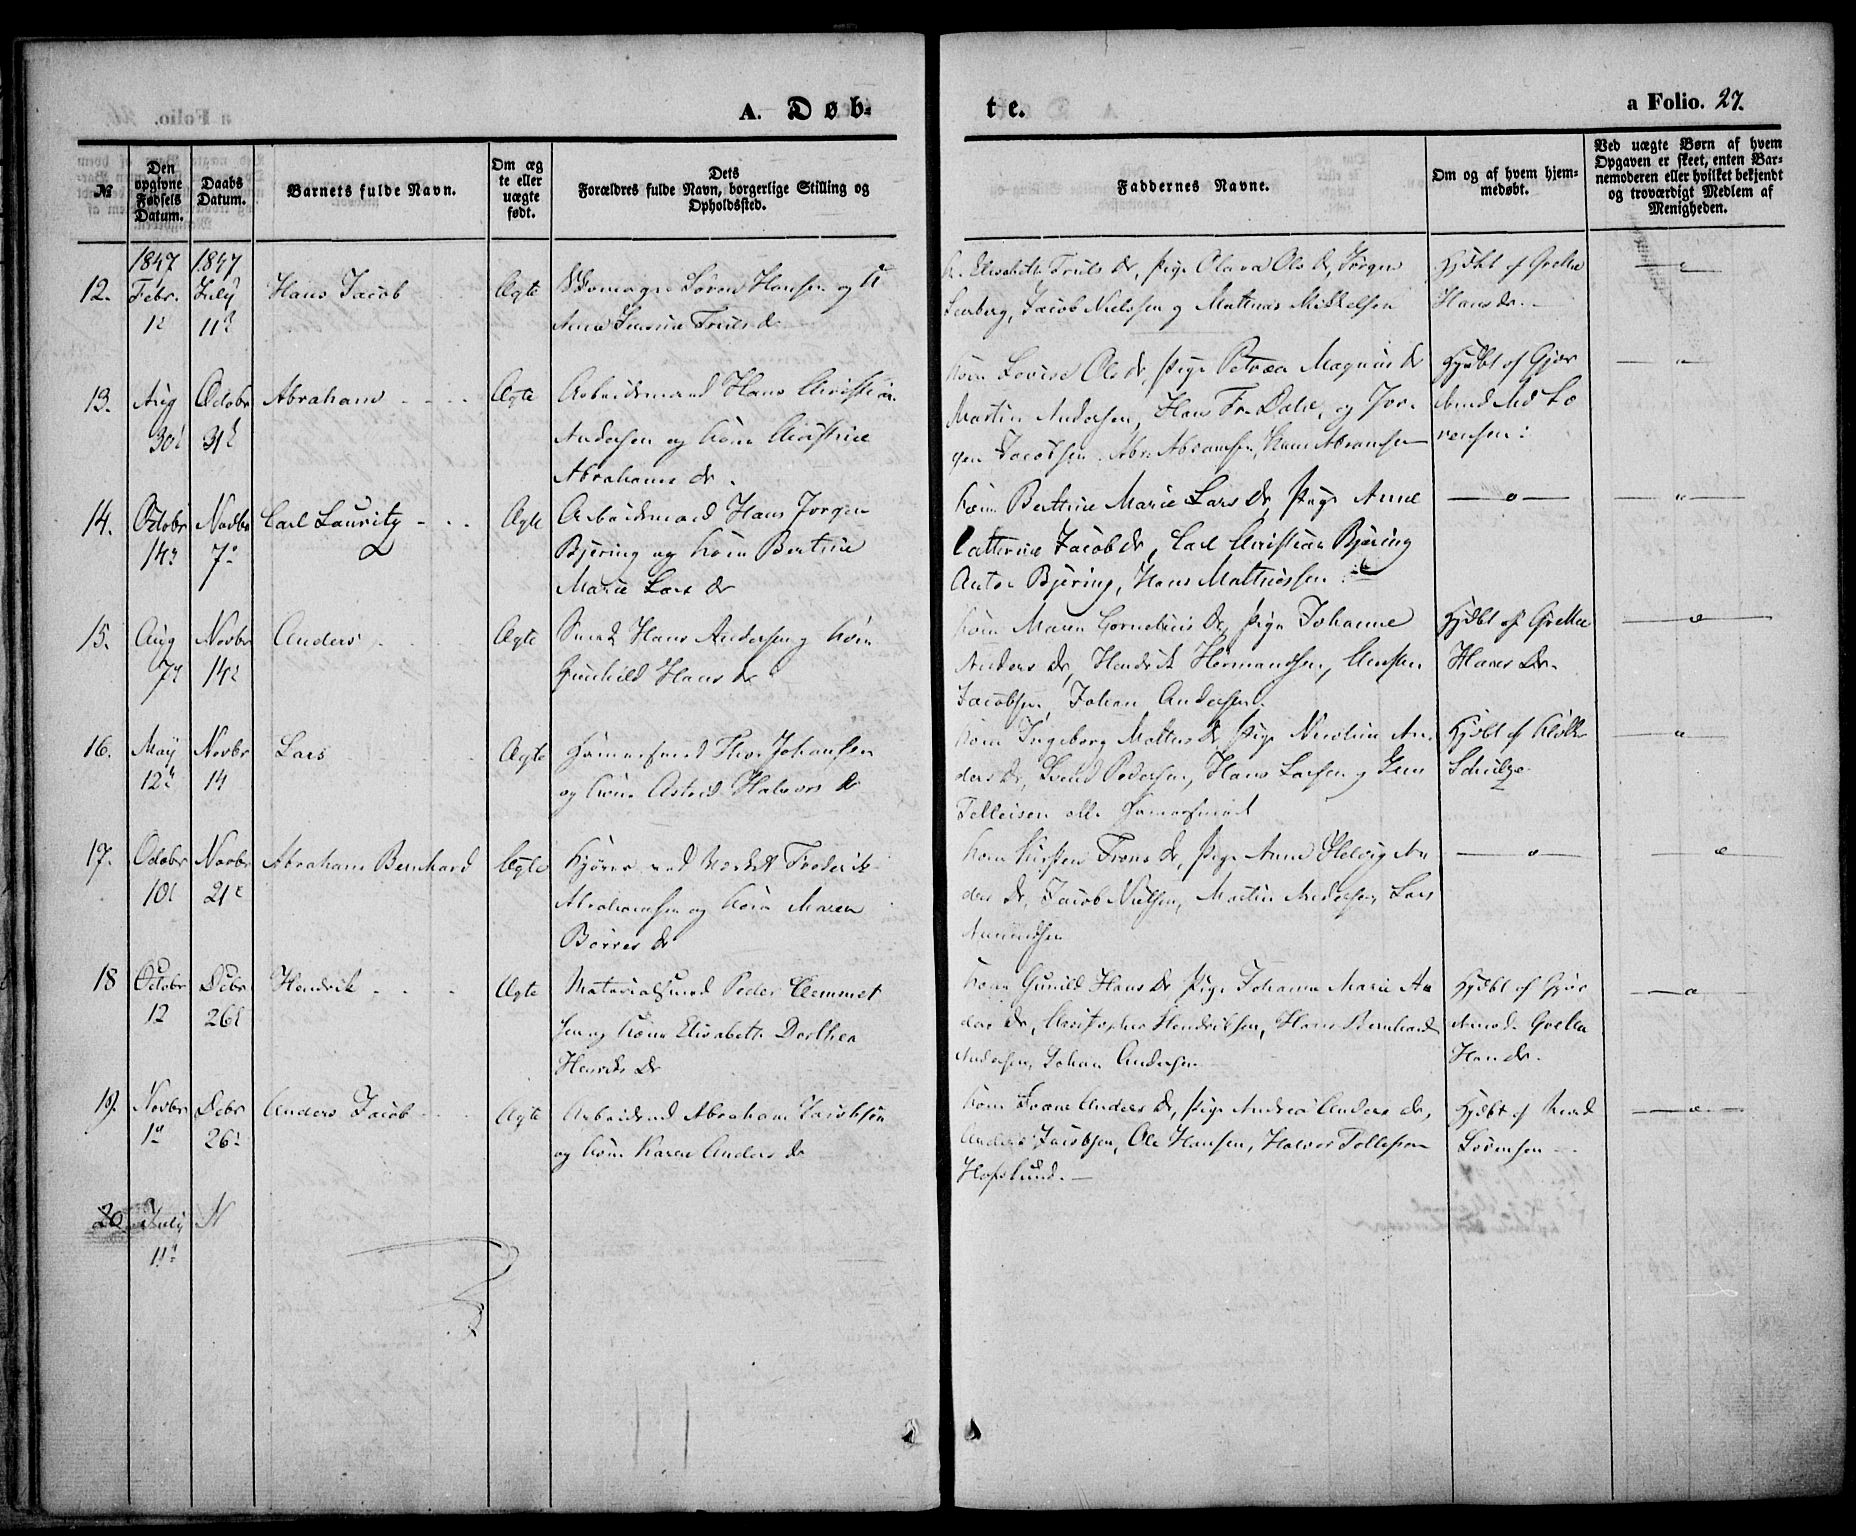 A. Døb-
te.
a Folio. 27.
№
Den opgivne Fødsels Datum.
Daabs Datum.
Barnets fulde Navn.
Om ægte eller uægte født.
Dets Forældres fulde Navn, borgerlige Stilling og Opholdssted.
Faddernes Navne.
Om og af hvem hjemmedøbt.
Ved uægte Børn af hvem Opgaven er skeet, enten Barnemoderen eller hvilket bekjendt og troværdigt Medlem af Menigheden.
1847 1847
12. Febr. July Hans Jacob Ægte Søren Hansen og
12 11
Anne Truls dr
Elisabeth Truls Dr, Pige Olava Ols dr, Jørgen
Jacob Nielssen og Mathias Mikkelsen
Hjdbt af Grethe
Hans dr.
13. Aug Octobr Abraham Ægte Arbeidsmand Hans Christian
30 31
Andersen og Kone Christine
Abrahams dr.
Kone Lovise Ols dr, Pige Petrea Magnus dr
Martin Andersen, Hans Fr. Dahl, og Jør-
gen Jacobsen, Abr. Abramsen, Abramsen
Hjdbt af Gjor
14. Octobr Novbr Carl Lauritz Ægte Arbeidsmand Hans Jørgen
14 7
Bjering og Kone Bertine
Marie Lars dr
Kone Bertine Marie Lars Dr, Pige Anne
Catterine Jacob dr, Carl Christian Bjering
Anton Bjering, Hans Mathiessen
15. Aug Novbr Anders Ægte Smed Hans Andersen og Kone
7 14
Gunhild Hans dr
Kone Maren Cornelius Dr, Pige Johanne
Anders Dr, Hendrik Hermandsen,
Jacobsen, Johan Andersen.
Hjdbt af Grethe
Hans Dr.
16. May Novbr Lars Ægte Hammersmed Thor Johansen
12 14
og Kone Astrid Halvors dr
Kone Ingeborg Mathis Dr, Pige Nicoline An-
ders Dr, Svend Pedersen, Hans Larsen og Jens
Tellefsen alle
Hjdbt af Klokker
Schulze
17. Octobr Novbr Abraham Bernhard Ægte Kjører ved Værket Frederik
10 21
Abrahamsen og Kone Maren
Børres dr
Kone Kirsten Trons dr, Pige Anne Helvig An-
ders Dr, Jacob Nielsen, Martin Andersen, Lars
Amundsen
18 Octobr Debr Hendrik Ægte Materialsmed Peder Clemmet
12 26
sen og Kone Elisabeth Dorthea
Henriks Dr
Kone Gunild Hans Dr Pige Johanne Marie An-
ders Dr, Christopher Hendriksen, Hans Bernhard
Andersen, Johan Andersen
Hjdbt af Gjor
Grethe
Hans dr.
19. Novbr Debr Anders Jacob Ægte Arbeidsmd Abraham Jacobsen
1 26
og Kone Karen Anders dr
Kone Anders Dr, Pige Andrea Anders dr,
Anders Jacobsen, Ole Hansen, Halvor Tellefsen
Hafslund.
Hjdbt af
Sørensen
20 July
11